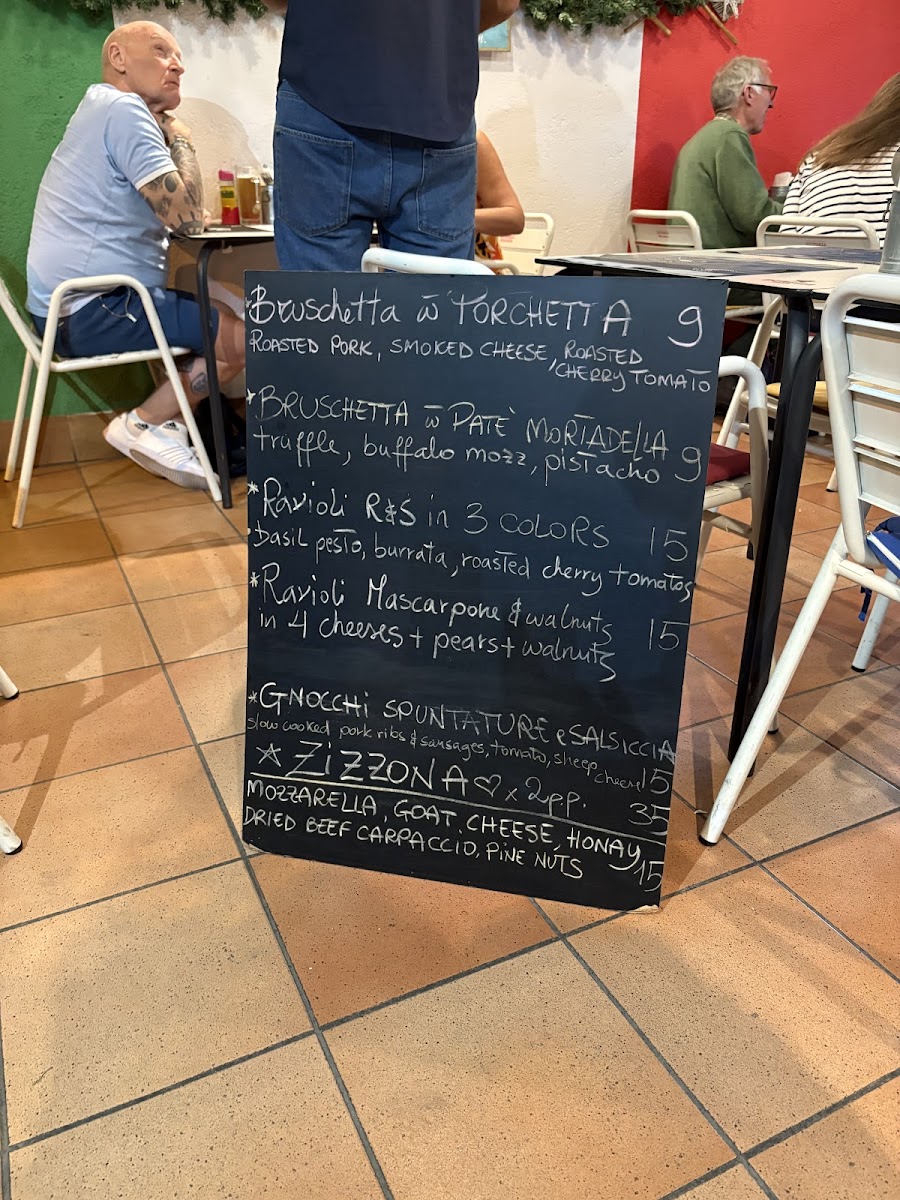 * Bruschetta w̄ PORCHETTA 9
ROASTED PORK, SMOKED CHEESE, ROASTED
CHERRY TOMATO
* BRUSCHETTA w̄ PATÈ MORTADELLA
truffle, buffalo mozz, pistacho 9
* Ravioli R&S in 3 COLORS 15
basil pesto, burrata, roasted cherry tomatos
* Ravioli Mascarpone & walnuts
in 4 cheeses + pears + walnuts 15
* GNOCCHi SPUNTATURE e SALSICCIA
slow cooked pork ribs & sausages, tomato, sheep cheese 15
☆ ZiZZONA ♡ x 2 p.p. 35
MOZZARELLA, GOAT CHEESE, HONAY
DRIED BEEF CARPACCIO, PINE NUTS 15